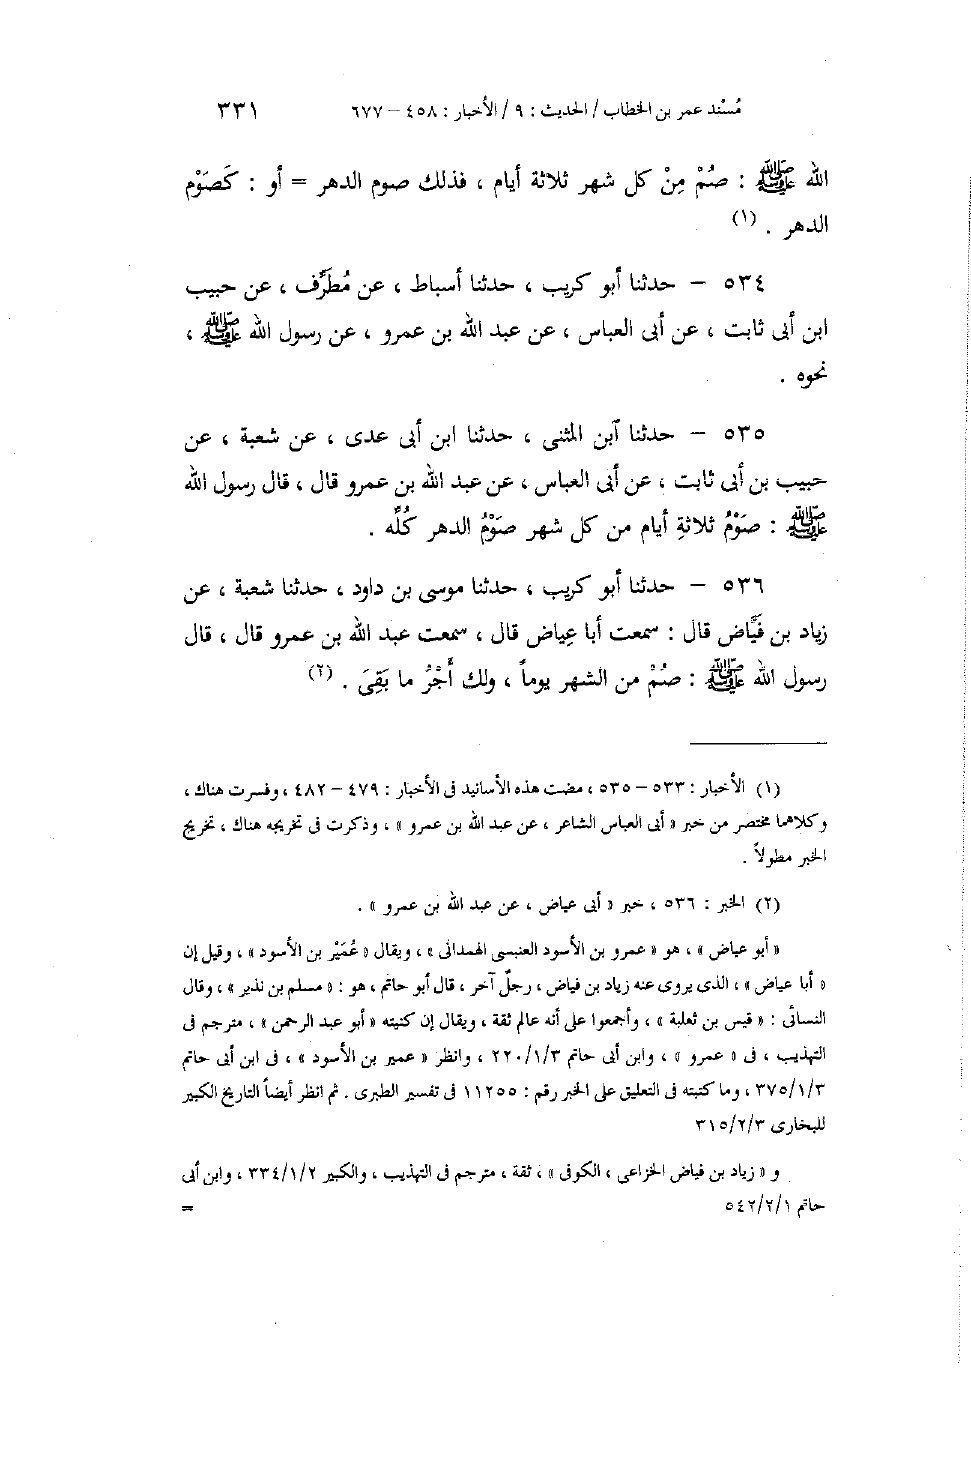 مُسْند عمر بن الخطاب / الحديث : ٩ / الأخبار : ٤٥٨ – ٦٧٧ ٣٣١
الله ﷺ : صُمْ مِنْ كل شهر ثلاثة أيام ، فذلك صوم الدهر = أو : كَصَوْم
الدهر . (١)
٥٣٤ – حدثنا أبو كريب ، حدثنا أسباط ، عن مُطَرِّف ، عن حبيب
ابن أبى ثابت ، عن أبى العباس ، عن عبد الله بن عمرو ، عن رسول الله ﷺ ،
نحوه .
٥٣٥ – حدثنا آبن المثنى ، حدثنا ابن أبى عدى ، عن شعبة ، عن
حبيب بن أبى ثابت ، عن أبى العباس ، عن عبد الله بن عمرو قال ، قال رسول الله
ﷺ : صَوْمُ ثلاثةِ أيام من كل شهر صَوْمُ الدهر كُلِّه .
٥٣٦ – حدثنا أبو كريب ، حدثنا موسى بن داود ، حدثنا شعبة ، عن
زياد بن فيَّاض قال : سمعت أبا عِياض قال ، سمعت عبد الله بن عمرو قال ، قال
رسول الله ﷺ : صُمْ من الشهر يوماً ، ولك أَجْرُ ما بَقِىَ . (٢)
(١) الأخبار : ٥٣٣ – ٥٣٥ ، مضت هذه الأسانيد فى الأخبار : ٤٧٩ – ٤٨٢ ، وفسرت هناك ،
وكلاهما مختصر من خبر « أبى العباس الشاعر ، عن عبد الله بن عمرو » ، وذكرت فى تخريجه هناك ، تخريج
الخبر مطولاً .
(٢) الخبر : ٥٣٦ ، خبر « أبى عياض ، عن عبد الله بن عمرو » .
« أبو عياض » ، هو « عمرو بن الأسود العنبسى الهمدانى » ، ويقال « عُمَيْر بن الأسود » ، وقيل إن
« أبا عياض » ، الذى يروى عنه زياد بن فياض ، رجلٌ آخر ، قال أبو حاتم ، هو : « مسلم بن نذير » ، وقال
النسائى : « قيس بن ثعلبة » ، وأجمعوا على أنه عالم ثقة ، ويقال إن كنيته « أبو عبد الرحمن » ، مترجم فى
التهذيب ، فى « عمرو » ، وابن أبى حاتم ٢٢٠/١/٣ ، وانظر « عمير بن الأسود » ، فى ابن أبى حاتم
٣٧٥/١/٣ ، وما كتبته فى التعليق على الخبر رقم : ١١٢٥٥ فى تفسير الطبرى . ثم انظر أيضاً التاريخ الكبير
للبخارى ٣١٥/٢/٣
و « زياد بن فياض الخزاعى ، الكوفى » ، ثقة ، مترجم فى التهذيب ، والكبير ٣٣٤/١/٢ ، وابن أبى
حاتم ٥٤٢/٢/١ =